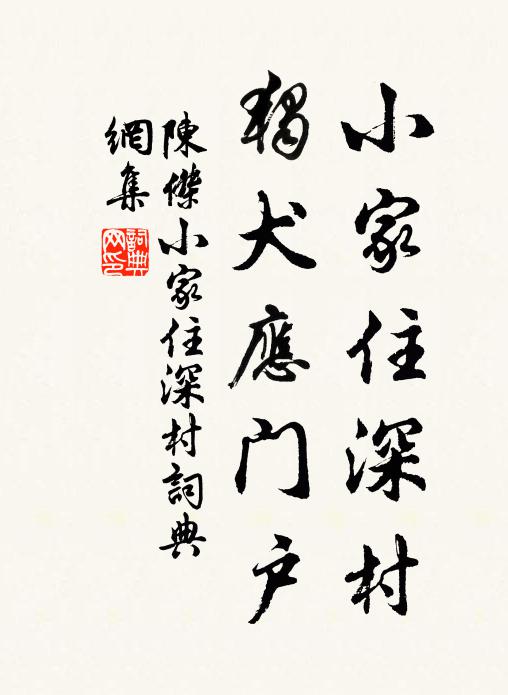 小家住深村
獨犬應门户
陳傑小家住深村詞典
網集
詞典
网印